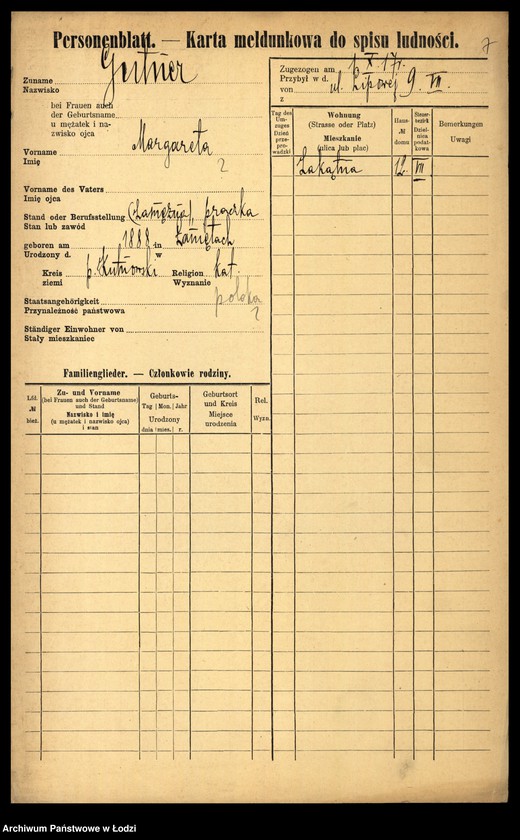 Personenblatt. — Karta meldunkowa do spisu ludności.
7
Zuname
Nazwisko
Gertner
bei Frauen auch
der Geburtsname
u mężatek i na-
zwisko ojca
Vorname
Imię
Margareta
?
Vorname des Vaters
Imię ojca
Stand oder Berufsstellung
Stan lub zawód
(zamężna),
geboren am 1888 in
Urodzony d. w
Kreis p. Kutnowski Religion kat.
ziemi Wyznanie
Staatsangehörigkeit
Przynależność państwowa
polska
?
Ständiger Einwohner von
Stały mieszkaniec
Zugezogen am 1 X. 17 r.
Przybył w d.
von ul. Lipowej 9. VII.
z
Tag des Um-zuges Dzień prze-prowadzki
Wohnung (Strasse oder Platz) Mieszkanie (ulica lub plac)
Haus- № domu
Steuer-bezirk Dziel-nica podat-kowa
Bemerkungen Uwagi
Zakątna 12. VII
Familienglieder. — Członkowie rodziny.
Lfd. № bież.
Zu- und Vorname (bei Frauen auch der Geburtsname) und Stand Nazwisko i imię (u mężatek i nazwisko ojca) i stan
Geburts- Tag Mon. Jahr Urodzony dnia mies. r.
Geburtsort und Kreis Miejsce urodzenia
Rel. Wyzn.
Archiwum Państwowe w Łodzi